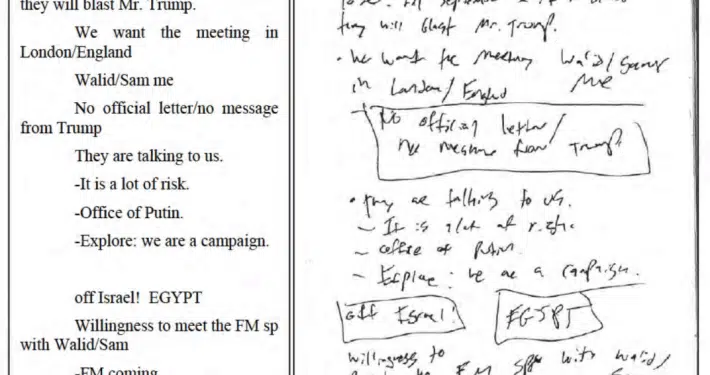 they will blast Mr. Trump.
We want the meeting in
London/England
Walid/Sam me
No official letter/no message
from Trump
They are talking to us.
-It is a lot of risk.
-Office of Putin.
-Explore: we are a campaign.
off Israel! EGYPT
Willingness to meet the FM sp
with Walid/Sam
-FM coming
they will blast Mr. Trump.
• We want the meeting Walid/Sam
in London/England me
No official letter/
no message from Trump
• They are talking to us.
- It is a lot of risk.
- office of Putin.
- Explore: we are a campaign.
off Israel! EGYPT
willingness to
FM sp with Walid/